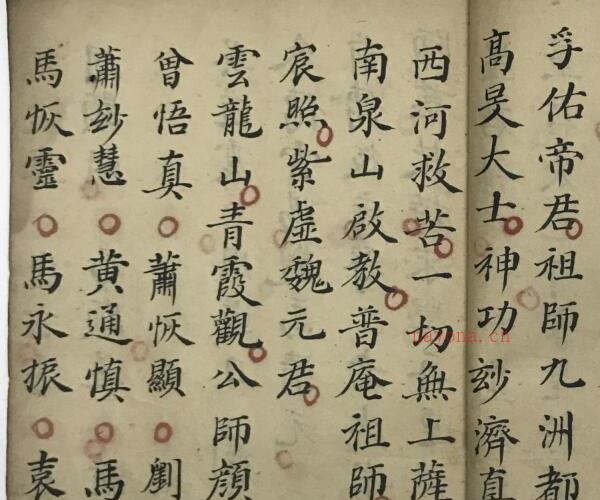 孚佑帝君祖師九洲都
高旻大士神功玅濟真
西河救苦一切無上薩
南泉山啟教普庵祖師
宸照紫虛魏元君
雲龍山青霞觀公師顔
曾悟真蕭恢顯劉
蕭玅慧黄通慎馬
馬恢靈馬永振袁
nayona.cn